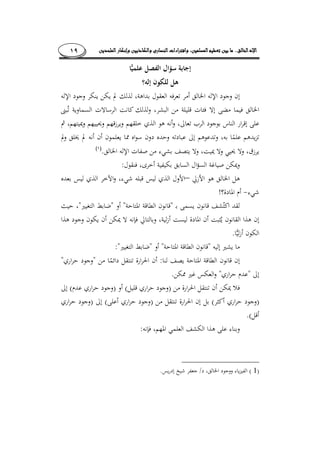 الإله الخالق.. ما بين تعظيم المسلمين، وافتراءات النصارى والمغالين وإنكار الملحدين ١٩
إجابة سؤال الفصل علميًّا
هل للكون إله؟
إن وجود الإله الخالق أمر تعرفه العقول بداهة، لذلك لم يكن ينكر وجود الإله
الخالق فيما مضى إلا فئات قليلة من البشر، ولذلك كانت الرسالات السماوية تُبنَى
على إقرار الناس بوجود الرب تعالى، وأنه هو الذي خلقهم ويرزقهم ويحييهم ويميتهم، ثم
تزيدهم علمًا به، وتدعوهم إلى عبادته وحده دون سواه مما يعلمون أن أنه لم يخلق ولم
يرزق، ولا يحيي ولا يميت، ولا يتصف بشيء من صفات الإله الخالق.(١)
ويمكن صياغة السؤال السابق بكيفية أخرى، فنقول:
هل الخالق هو الأزلي –الأول الذي ليس قبله شيء، والآخر الذي ليس بعده
شيء- أم المادة؟!
لقد اكتُشف قانون يسمى بـ "قانون الطاقة المتاحة" أو "ضابط التغيير"، حيث
إن هذا القانون يُثبت أن المادة ليست أزلية، وبالتالي فإنه لا يمكن أن يكون وجود هذا
الكون أزليًّا.
ما يشير إليه "قانون الطاقة المتاحة" أو "ضابط التغيير":
إن قانون الطاقة المتاحة يصف لنا: أن الحرارة تنتقل دائمًا من "وجود حراري"
إلى "عدم حراري" والعكس غير ممكن.
فلا يمكن أن تنتقل الحرارة من (وجود حراري قليل) أو (وجود حراري عدم) إلى
(وجود حراري أكثر) بل إن الحرارة تنتقل من (وجود حراري أعلى) إلى (وجود حراري
أقل).
وبناء على هذا الكشف العلمي المهم، فإنه:
(1 ) الفيزياء ووجود الخالق، د/ جعفر شيخ إدريس.